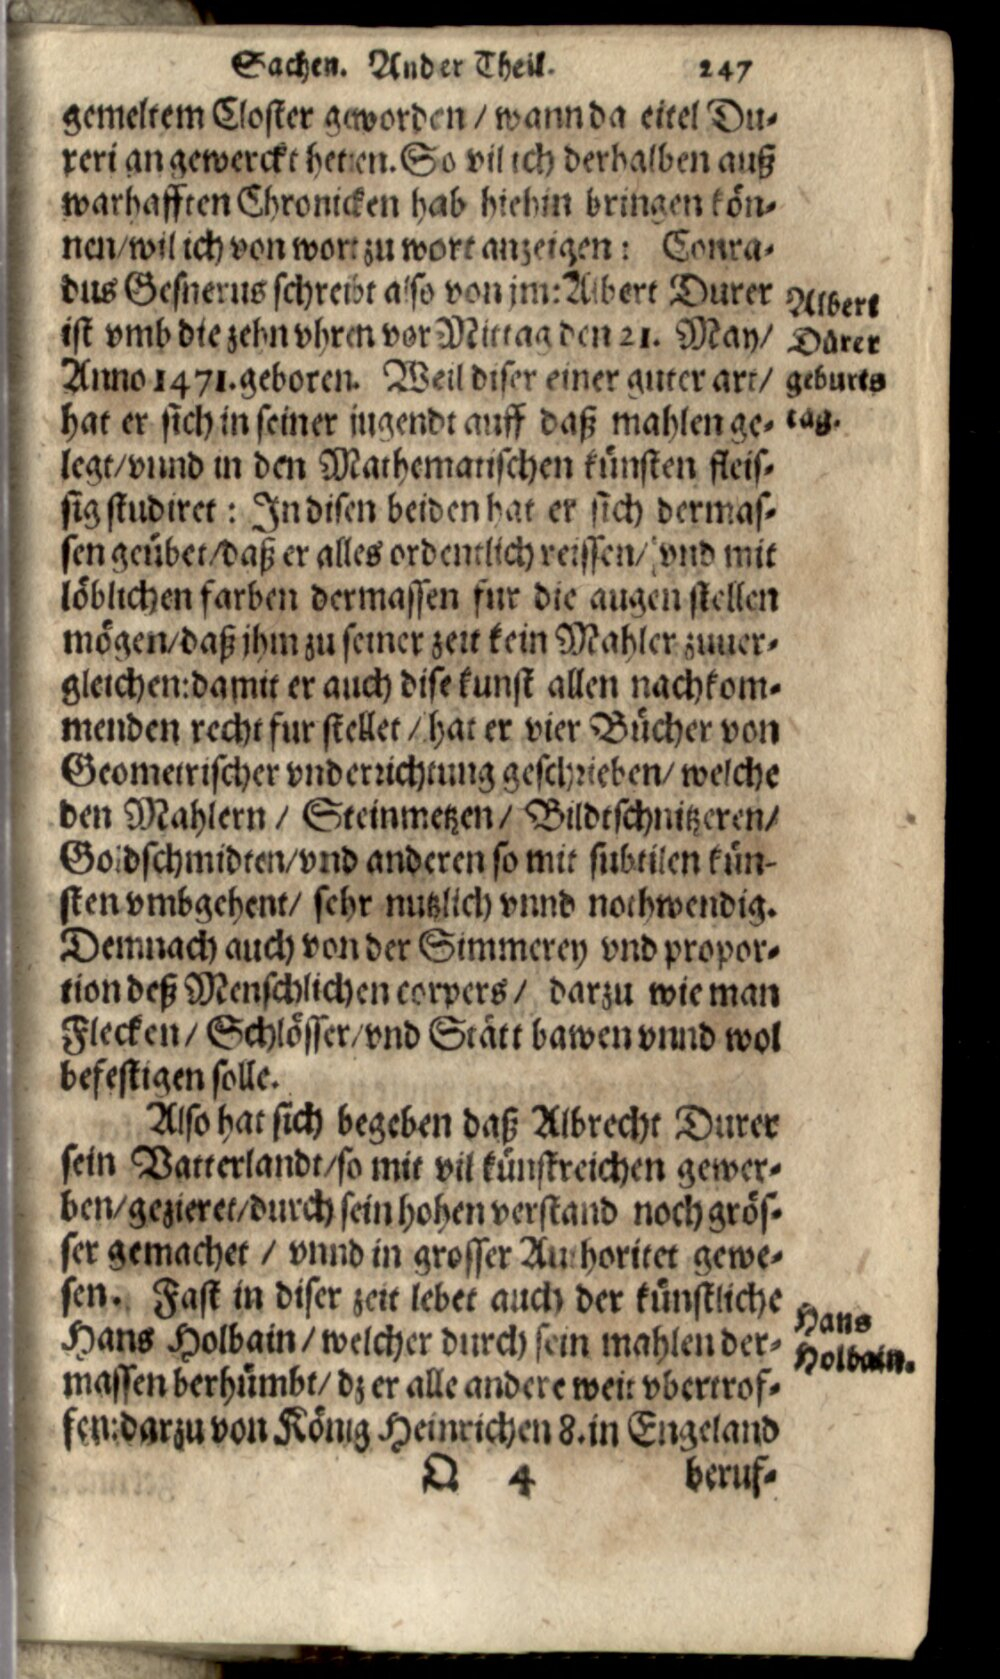 Sachen. Ander Theil. 247
gemeltem Closter geworden / wann da eitel Du-
reri an gewerckt hetten. So vil ich derhalben auß
warhafften Chronicken hab hiehin bringen kön-
nen / wil ich von wort zu wort anzeigen: Conra-
dus Gesnerus schreibt also von jm: Albert Durer
ist vmb die zehn vhren vor Mittag den 21. May /
Anno 1471. geboren. Weil diser einer guter art /
hat er sich in seiner jugendt auff daß mahlen ge-
legt / vnnd in den Mathematischen künsten fleis-
sig studiret: In disen beiden hat er sich dermas-
sen geübet / daß er alles ordentlich reissen / vnd mit
löblichen farben dermassen fur die augen stellen
mögen / daß jhm zu seiner zeit kein Mahler zuuer-
gleichen: damit er auch dise kunst allen nachkom-
menden recht fur stellet / hat er vier Bücher von
Geometrischer vnderrichtung geschrieben / welche
den Mahlern / Steinmetzen / Bildtschnitzeren /
Goldschmidten / vnd anderen so mit subtilen kün-
sten vmbgehent / sehr nutzlich vnnd nothwendig.
Demnach auch von der Simmerey vnd propor-
tion deß Menschlichen corpers / darzu wie man
Flecken / Schlösser / vnd Stätt bawen vnnd wol
befestigen solle.
Also hat sich begeben daß Albrecht Durer
sein Vatterlandt / so mit vil künstreichen gewer-
ben / gezieret / durch sein hohen verstand noch grös-
ser gemachet / vnnd in grosser Authoritet gewe-
sen. Fast in diser zeit lebet auch der künstliche
Hans Holbain / welcher durch sein mahlen der-
massen berhümbt / dz er alle andere weit vbertrof-
fen: darzu von König Heinrichen 8. in Engeland
Q 4 beruf-
Albert
Dürer
geburts
tag.
Hans
Holbain.